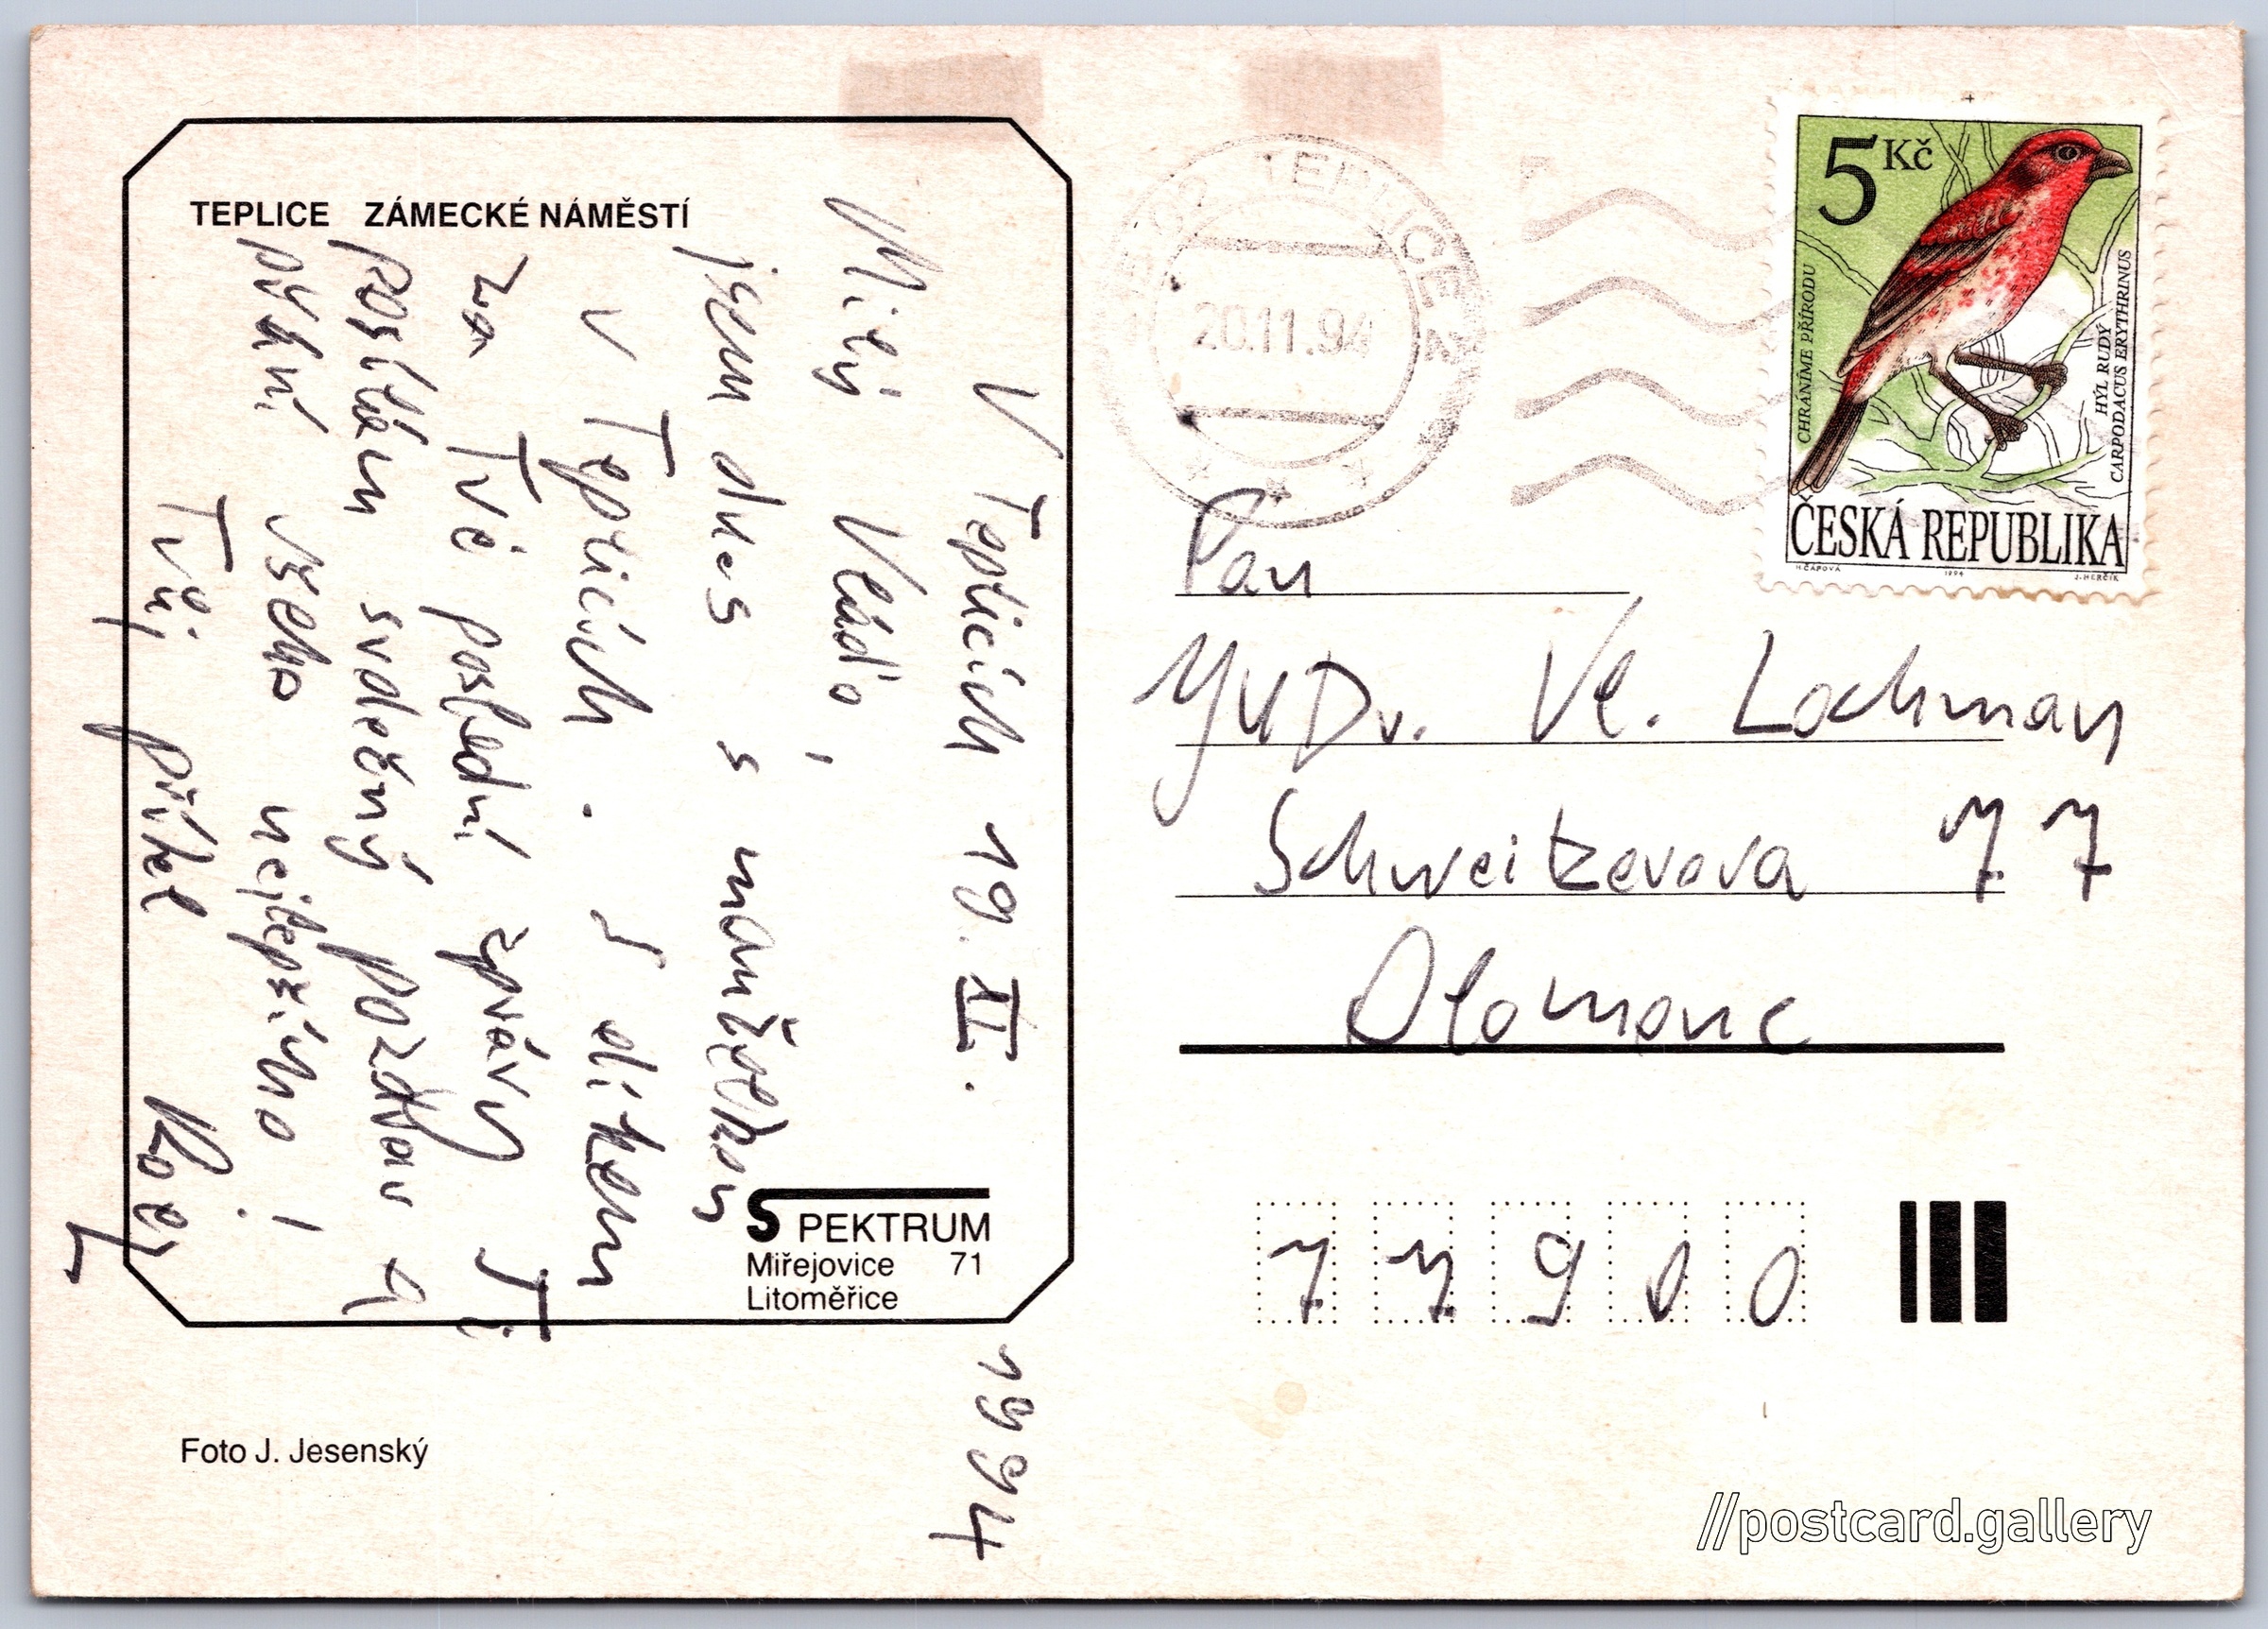 TEPLICE ZÁMECKÉ NÁMĚSTÍ
V Teplicích 19. XI. 1994
Milý Vláďo,
jsem dnes s manželkou
v Teplicích. S díkem
za Tvé poslední zprávy Ti
posílám srdečný pozdrav a
přání všeho nejlepšího!
Tvůj přítel
SPEKTRUM
Miřejovice 71
Litoměřice
Foto J. Jesenský
TEPLICE
20.11.94
5 Kč
CHRÁNÍME PŘÍRODU
HÝL RUDÝ
CARPODACUS ERYTHRINUS
ČESKÁ REPUBLIKA
H. ČÁPOVÁ 1994 J. HERČÍK
Pan
JUDr. Vl. Lochman
Schweitzerova 77
Olomouc
77900
//postcard.gallery